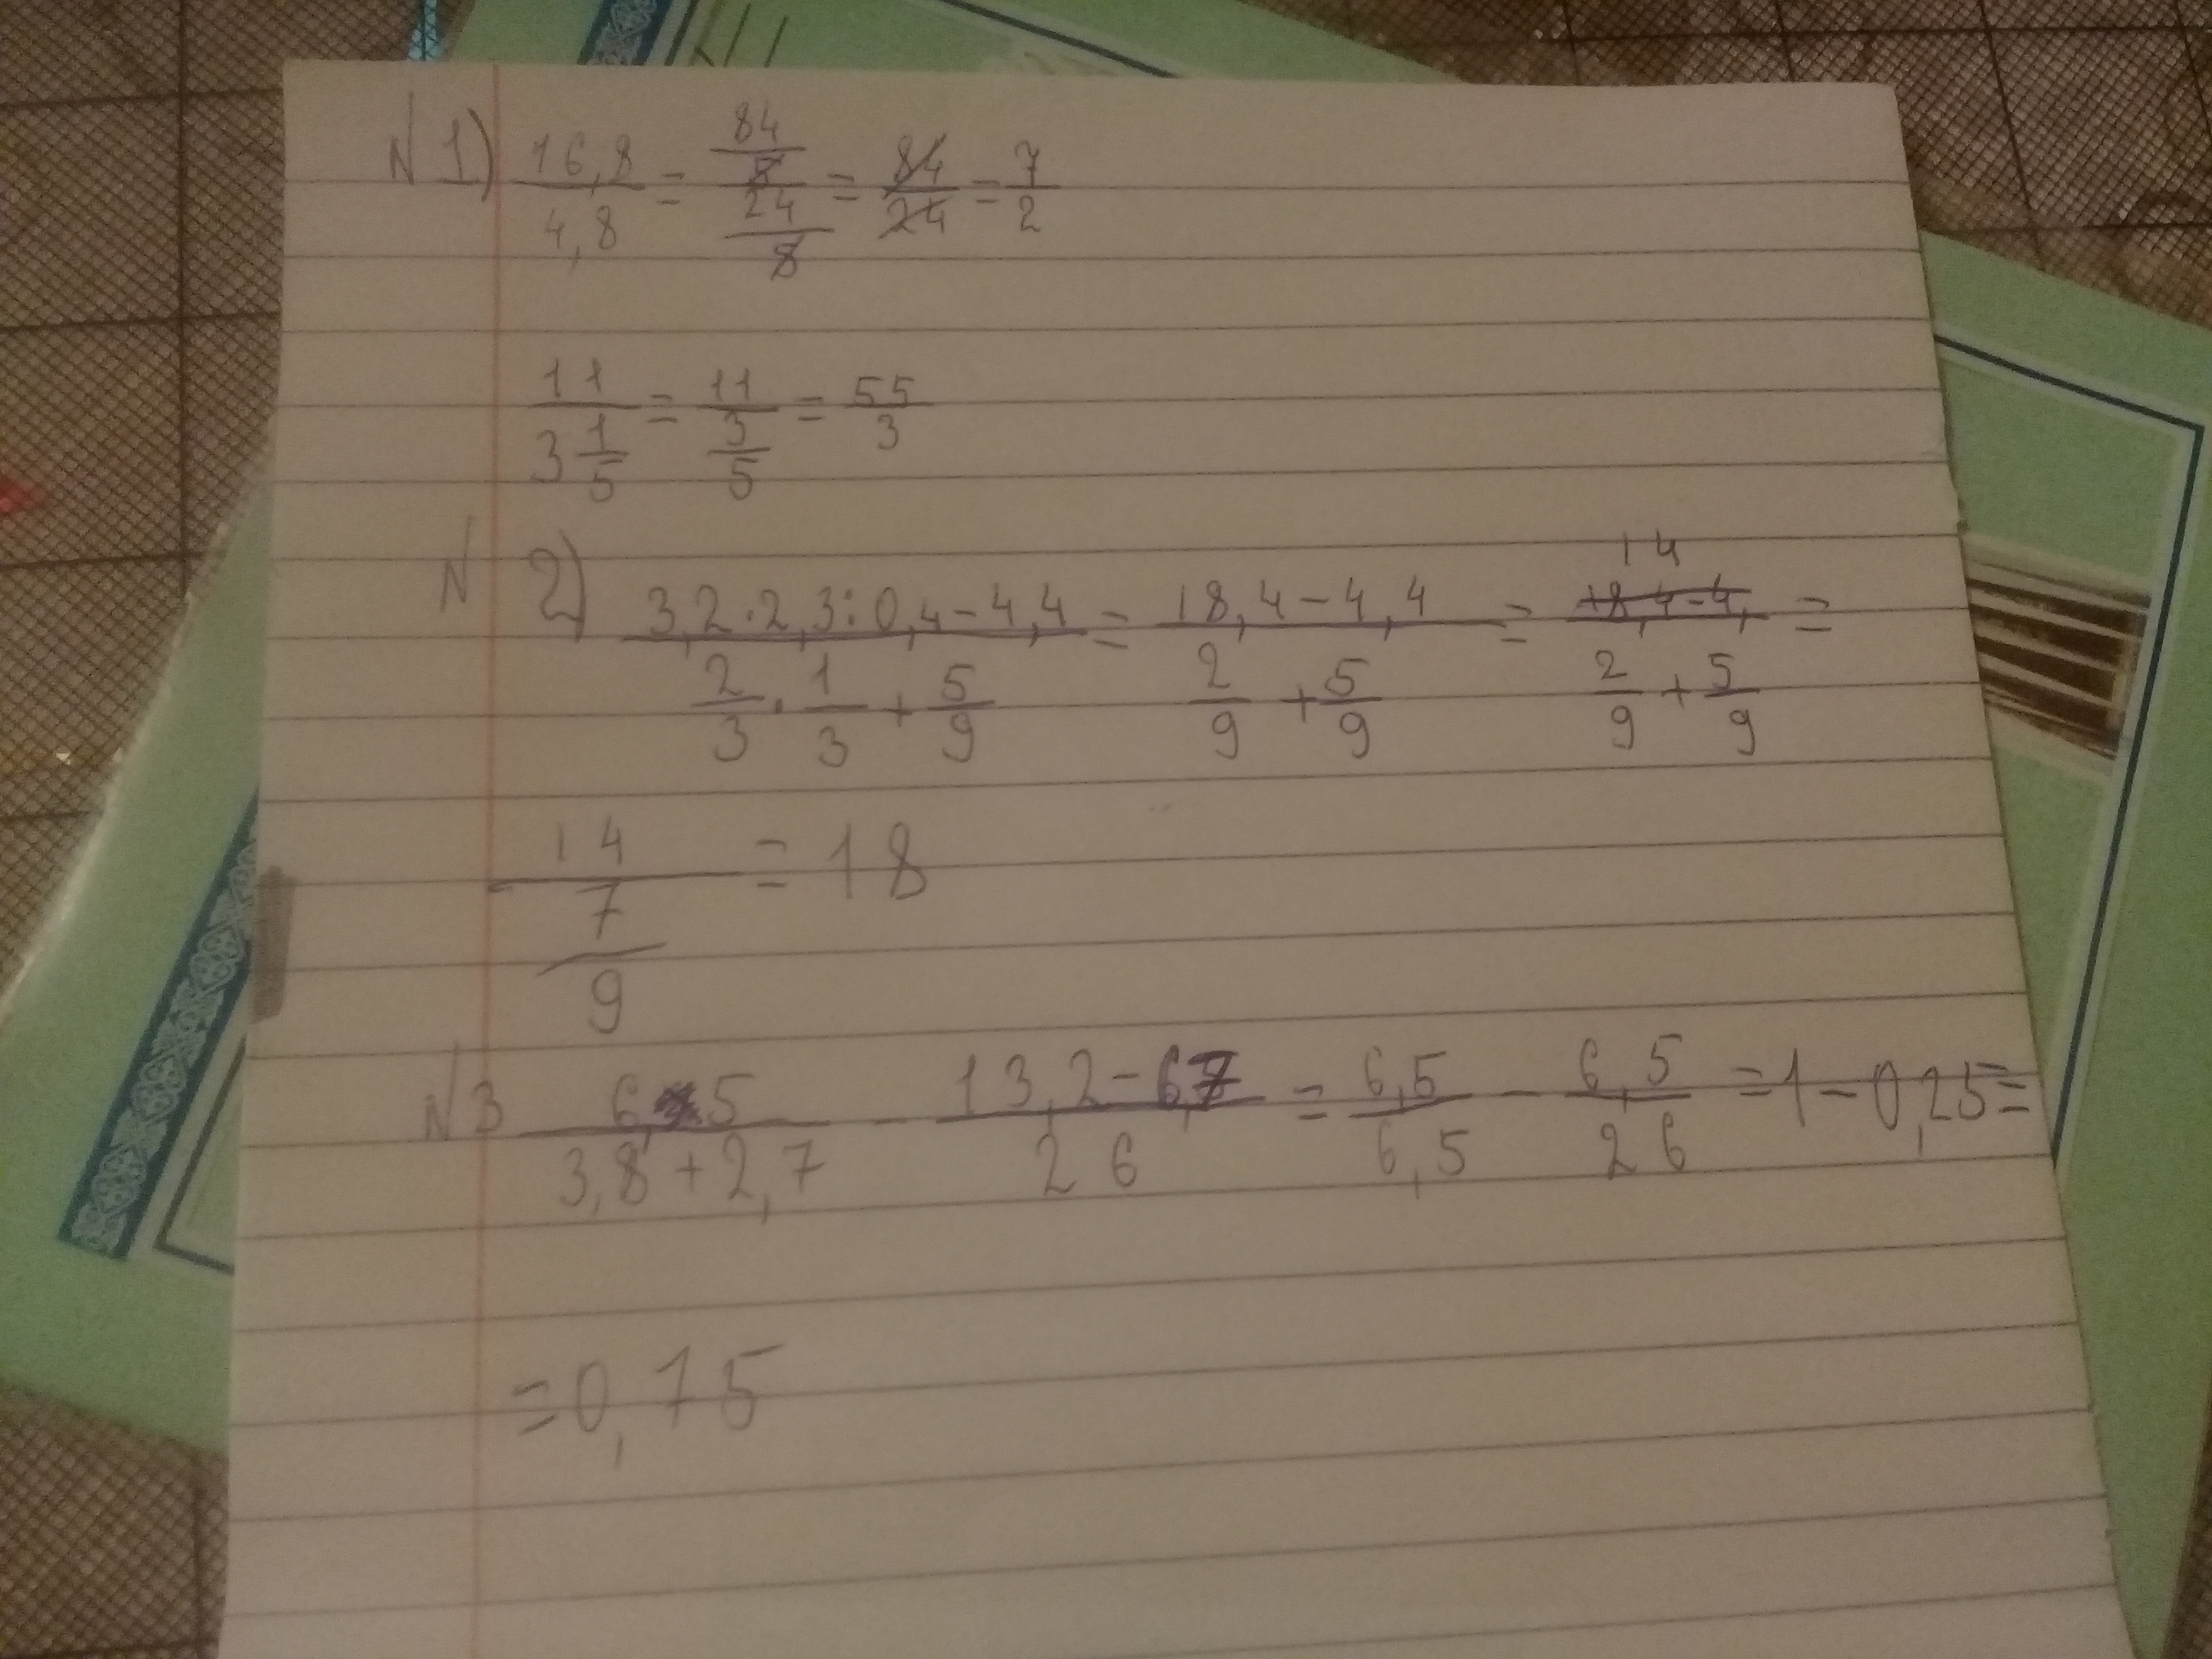 N 1) 16,8/4,8 = (84/8)/(24/8) = 84/24 = 7/2
11/(3 1/5) = 11/(3/5) = 55/3
N 2) (3,2·2,3:0,4-4,4)/(2/3·1/3+5/9) = (18,4-4,4)/(2/9+5/9) = 14/(2/9+5/9) =
14/(7/9) = 18
N 3 6,5/(3,8+2,7) - (13,2-6,7)/26 = 6,5/6,5 - 6,5/26 = 1-0,25=
=0,75